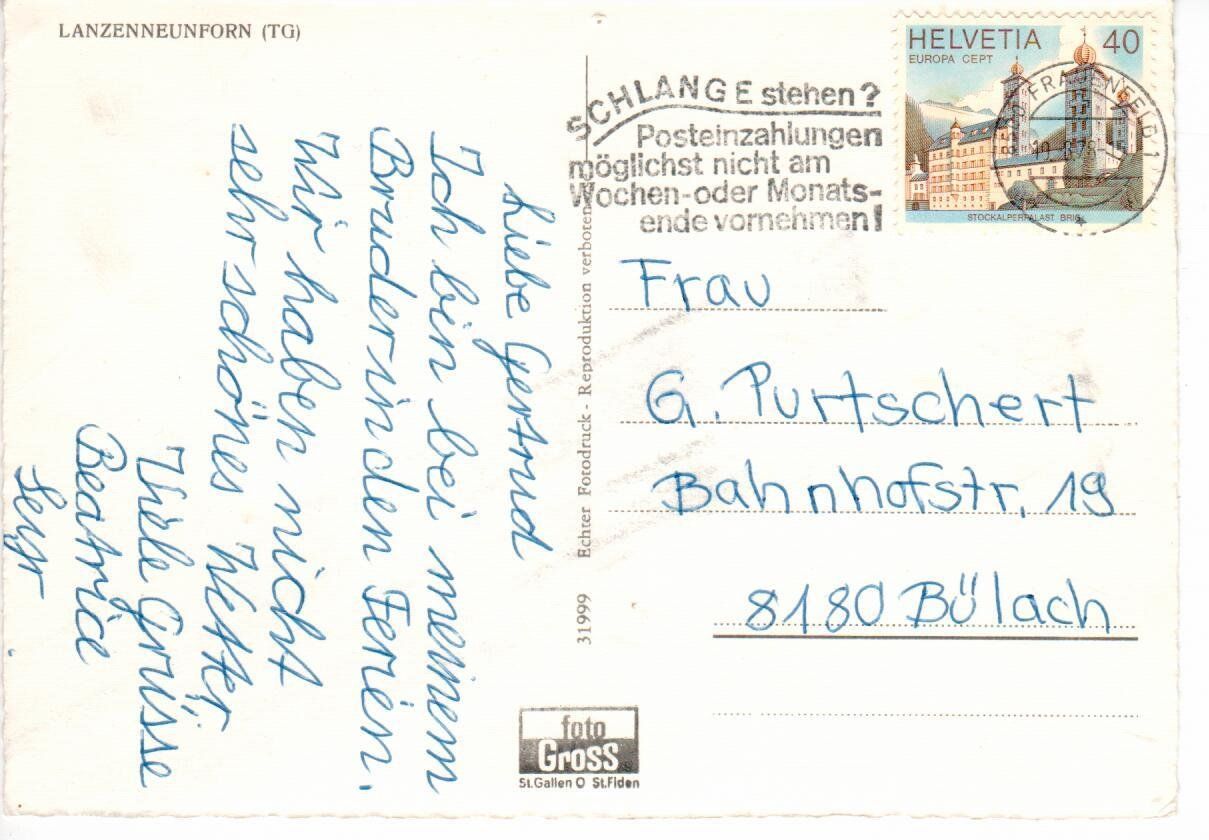 LANZENNEUNFORN (TG)
Liebe Gertrud
Ich bin bei meinem
Bruder in den Ferien.
Wir haben nicht
sehr schönes Wetter.
Viele Grüsse
Beatrice
31999 Echter Fotodruck - Reproduktion verboten
SCHLANGE stehen?
Posteinzahlungen
möglichst nicht am
Wochen-oder Monats-
ende vornehmen!
HELVETIA 40
EUROPA CEPT
STOCKALPERPALAST BRIG
FRAUENFELD 1
Frau
G. Purtschert
Bahnhofstr. 19
8180 Bülach
foto
Gross
St.Gallen O St.Fiden